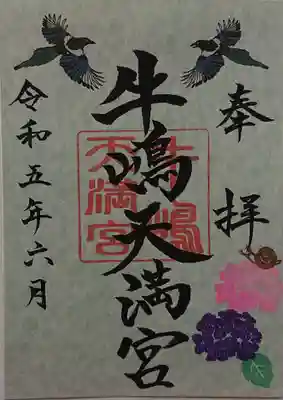 奉拝
牛嶋天満宮
令和五年六月
牛嶋
天満宮